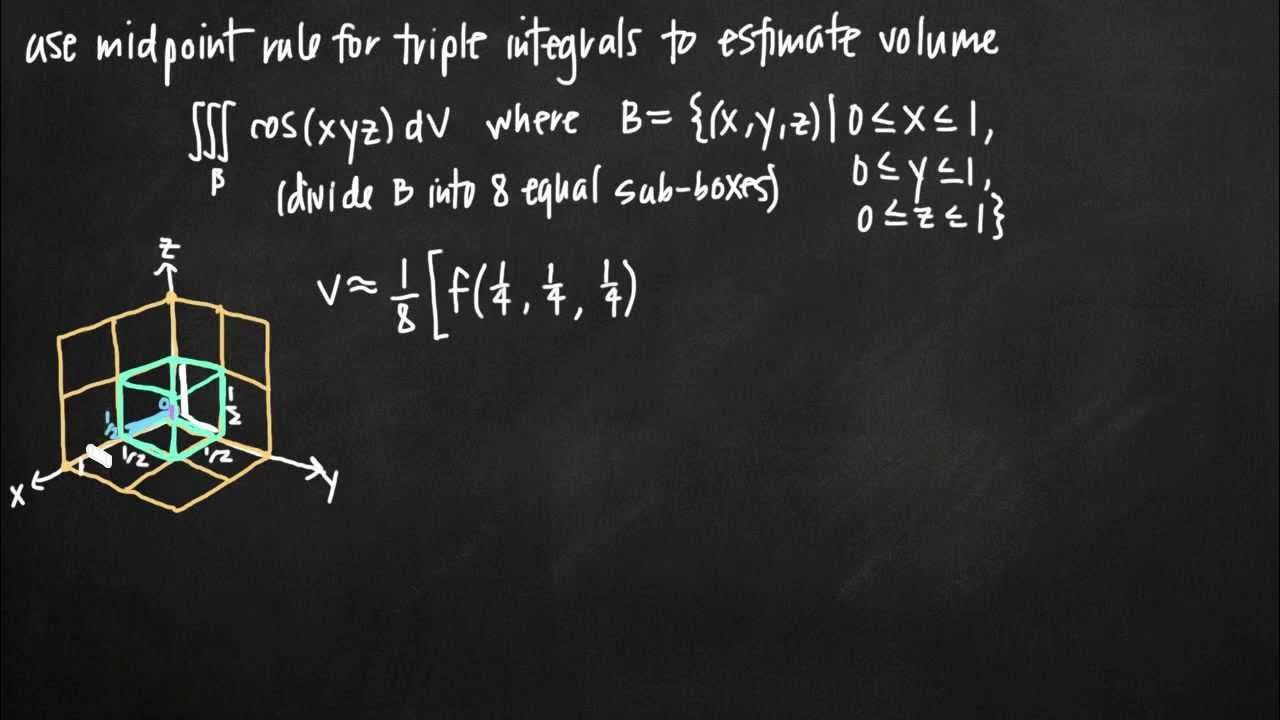 use midpoint rule for triple integrals to estimate volume
∭_B cos(xyz) dV where B = {(x,y,z) | 0 ≤ x ≤ 1,
0 ≤ y ≤ 1,
(divide B into 8 equal sub-boxes)
0 ≤ z ≤ 1}
z
V ≈ 1/8 [f(1/4, 1/4, 1/4)
0
1/2
1/2
1/2
1/2
1
x
y